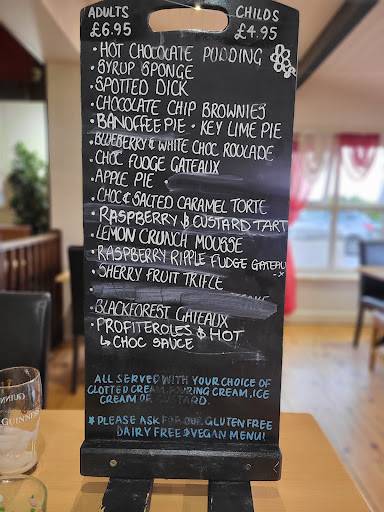 ADULTS CHILDS
£6.95 £4.95
• HOT CHOCOLATE PUDDING
• SYRUP SPONGE
• SPOTTED DICK
• CHOCOLATE CHIP BROWNIES
• BANOFFEE PIE • KEY LIME PIE
• BLUEBERRY & WHITE CHOC ROULADE
• CHOC FUDGE GATEAUX
• APPLE PIE
• CHOC & SALTED CARAMEL TORTE
• RASPBERRY & CUSTARD TART
• LEMON CRUNCH MOUSSE
• RASPBERRY RIPPLE FUDGE GATEAU
• SHERRY FRUIT TRIFLE
•
• BLACKFOREST GATEAUX
• PROFITEROLES & HOT
↳ CHOC SAUCE
ALL SERVED WITH YOUR CHOICE OF
CLOTTED CREAM, POURING CREAM, ICE
CREAM OR CUSTARD
* PLEASE ASK FOR OUR GLUTEN FREE
DAIRY FREE & VEGAN MENU!
GUINNESS